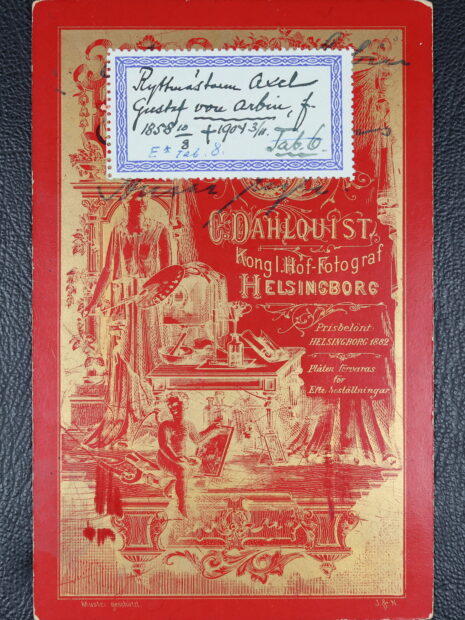 Ryttmästaren Axel
Gustaf von Arbin, f.
1858 10/8 † 1904 3/11. Tab. 6.
Ex Tab. 8.
C. DAHLQUIST.
Kongl. Hof-Fotograf
HELSINGBORG
Prisbelönt
HELSINGBORG 1882
Plåten förvaras
för
Efterbeställningar.
Muster geschützt.
J. & N.